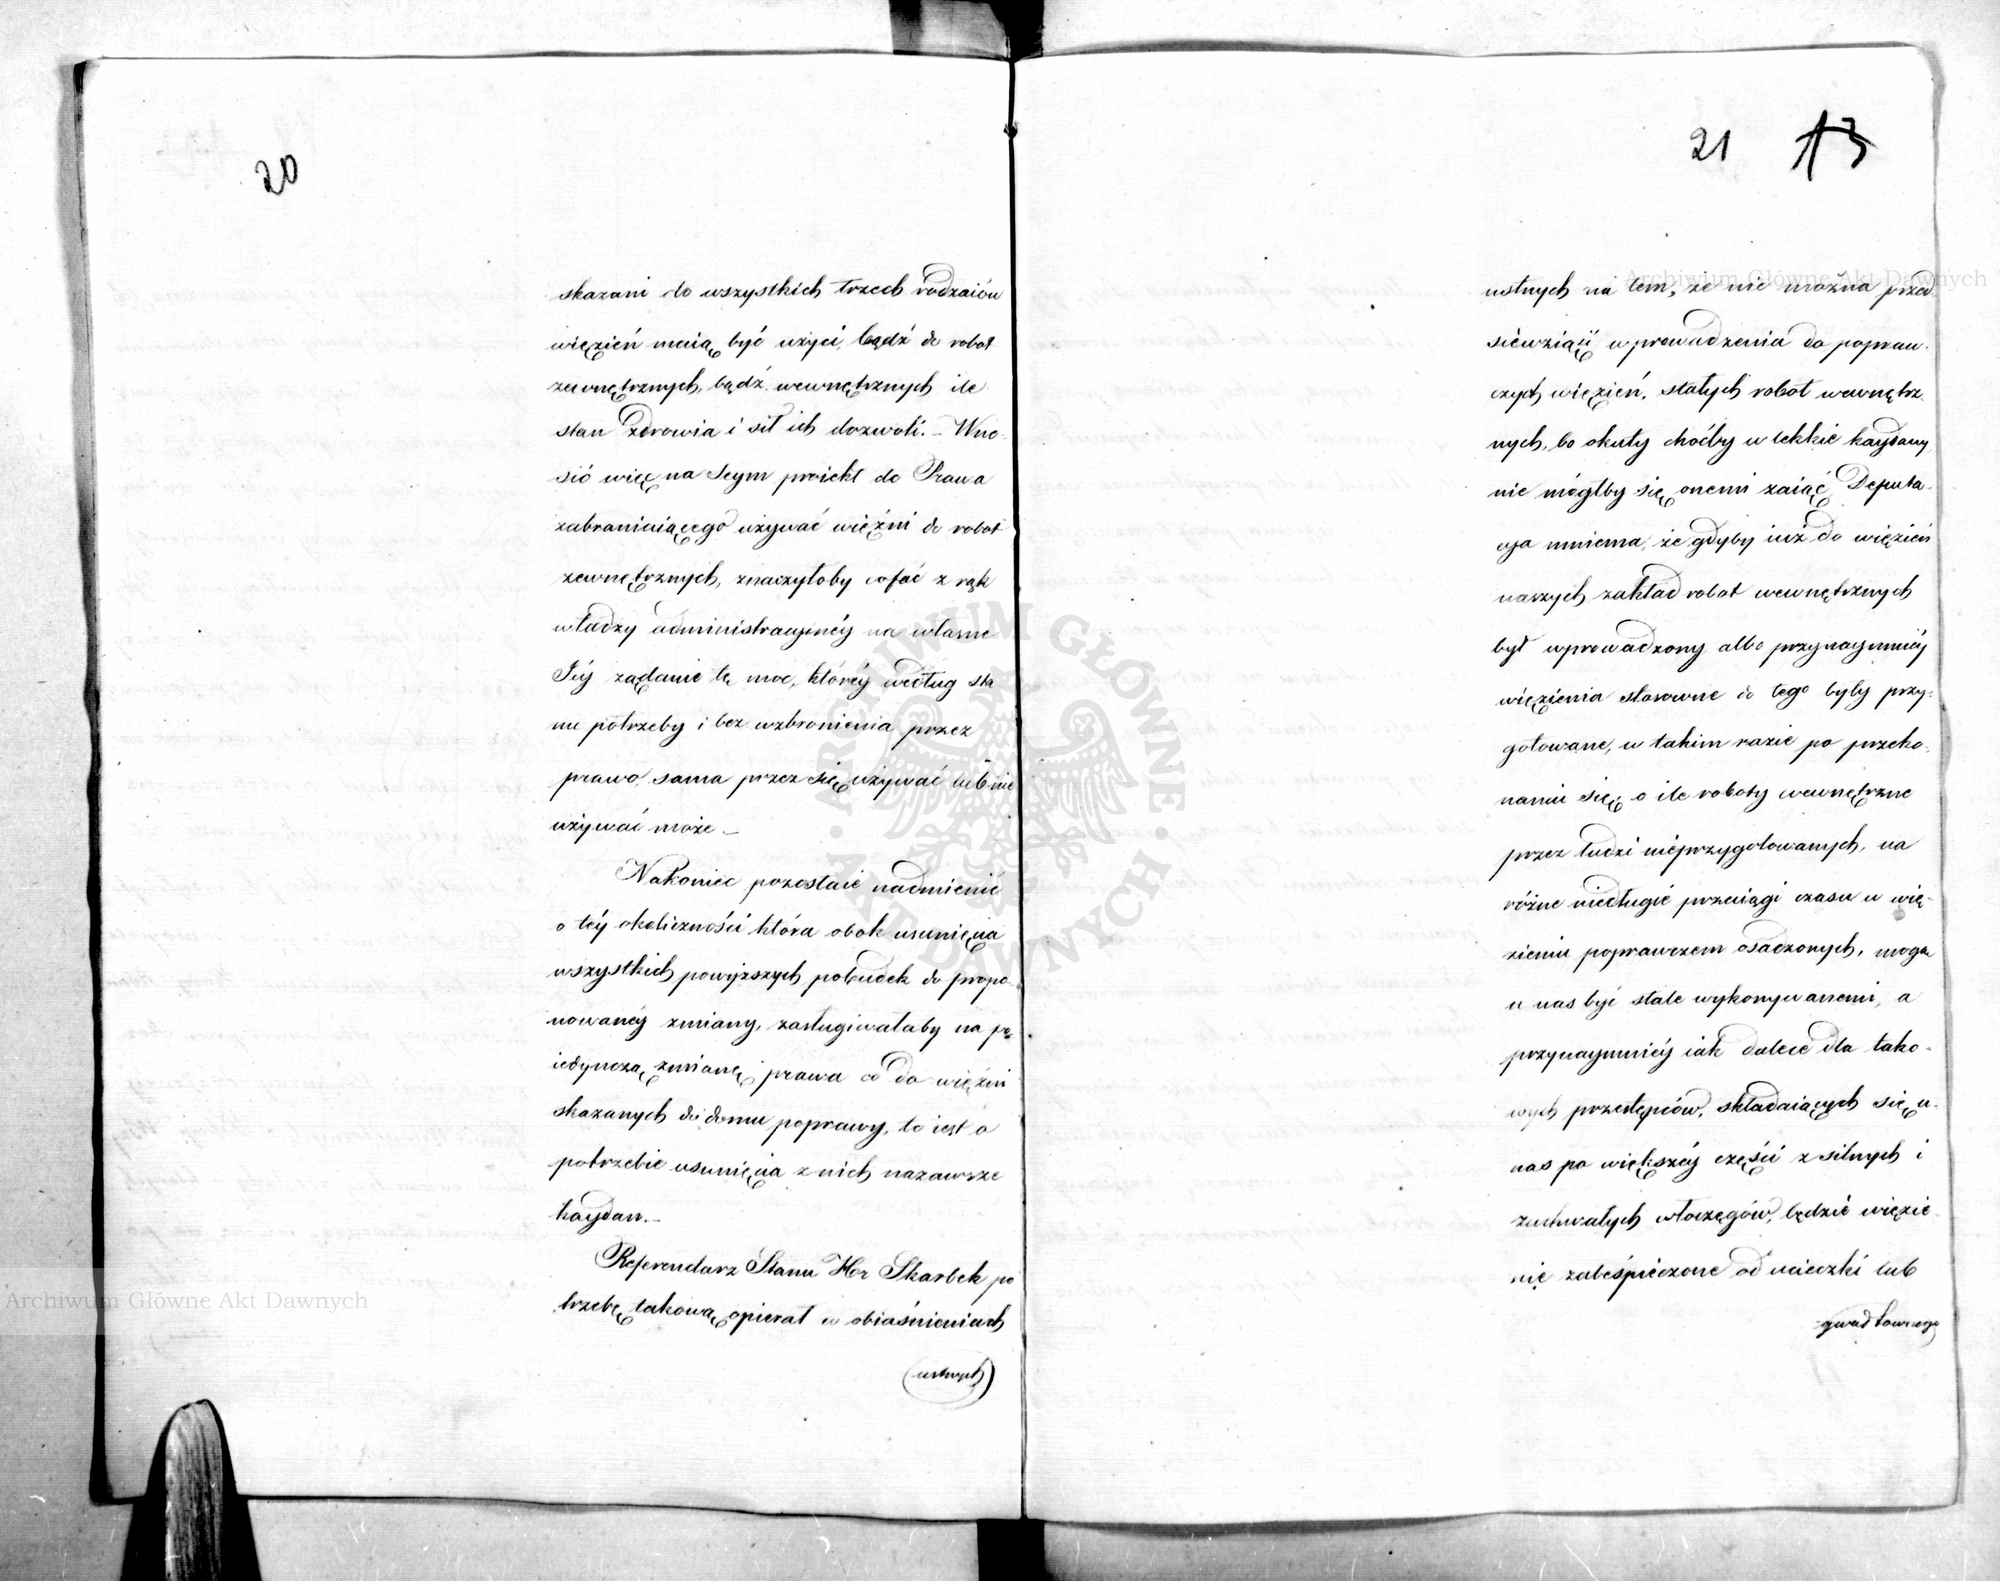 20
skazani do wszystkich trzech rodzaiów
więzień maią być użyci, bądź do robot
zewnętrznych, bądź wewnętrznych ile
stan zdrowia i sił ich dozwoli. – Wno-
sić więc na Seym proiekt do Prawa
zabraniaiącego używać więźni do robot
zewnętrznych, znaczyłoby cofać z rąk
władzy administracyinéy na własne
Jéy żądanie tę moc, któréy według sta
nu potrzeby i bez wzbronienia przez
prawo, sama przez się używać lub nie
używać może –
Nakoniec pozostaie nadmienić
o téy okoliczności która obok usunięcia
wszystkich powyższych pobudek do propo-
nowanéy zmiany, zasługiwałaby na po-
iedynczą zmianę prawa co do więźni
skazanych do domu poprawy, to iest o
potrzebie usunięcia z nich nazawsze
kaydan. –
Referendarz Stanu Hr Skarbek po
trzebę takową opierał w obiaśnieniach
ustnych
21 13
ustnych na tem, że nie można przed
siewziąść wprowadzenia do popraw-
czych więzień, stałych robot wewnętrz
nych, bo okuty choćby w lekkie kaydany
nie mógłby się onemi zaiąć. Deputa-
cya mniema, że gdyby iuż do więzień
naszych zakład robot wewnętrznych
był wprowadzony albo przynaymniéy
więzienia stosowne do tego były przy-
gotowane, w takim razie po przeko-
naniu się, o ile roboty wewnętrzne
przez ludzi nieprzygotowanych, na
różne niedługie przeciągi czasu w wię-
zieniu poprawczem osadzonych, mogą
u nas być stale wykonywanemi, a
przynaymniéy iak dalece dla tako-
wych przestępców, składaiących się u
nas po większéy części z silnych i
zuchwałych włoczęgów, będzie więzie-
nie zabespieczone od ucieczki lub
gwałtownego
Archiwum Główne Akt Dawnych
Archiwum Główne Akt Dawnych
ARCHIWUM GŁÓWNE AKT DAWNYCH